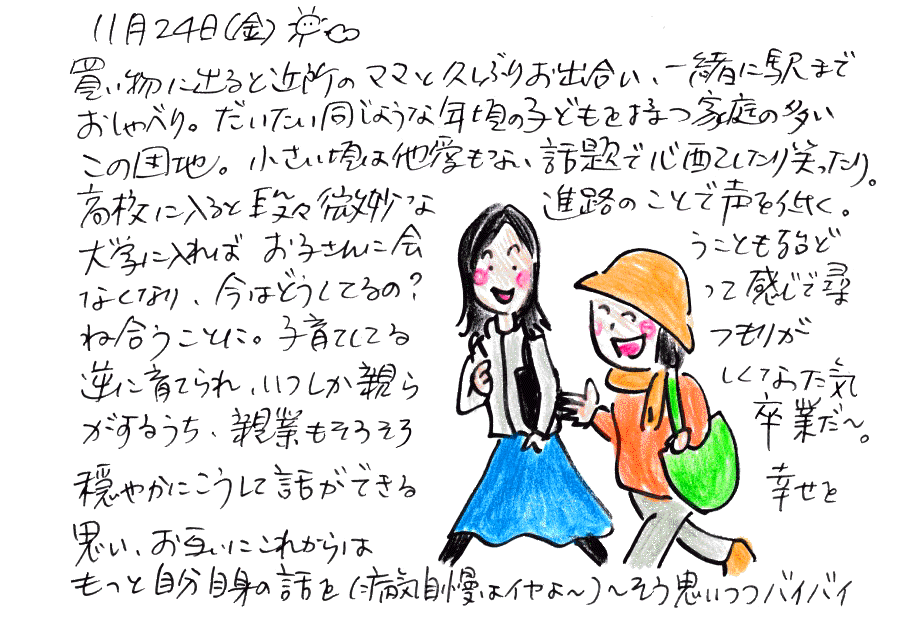 11月24日(金)
買い物に出ると近所のママと久しぶりお出合い、一緒に駅まで
おしゃべり。だいたい同じような年頃の子どもを持つ家庭の多い
この団地。小さい頃は他愛もない話題で心配したり笑ったり。
高校に入ると段々微妙な進路のことで声を低く。
大学に入れば お子さんに会うことも殆ど
なくなり、今はどうしてるの?って感じで尋
ね合うことに。子育てしてるつもりが
逆に育てられ、いつしか親らしくなった気
がするうち、親業もそろそろ卒業だ〜。
穏やかにこうして話ができる幸せを
思い、お互いにこれからは
もっと自分自身の話を(病気自慢はイヤよ〜)〜そう思いつつバイバイ